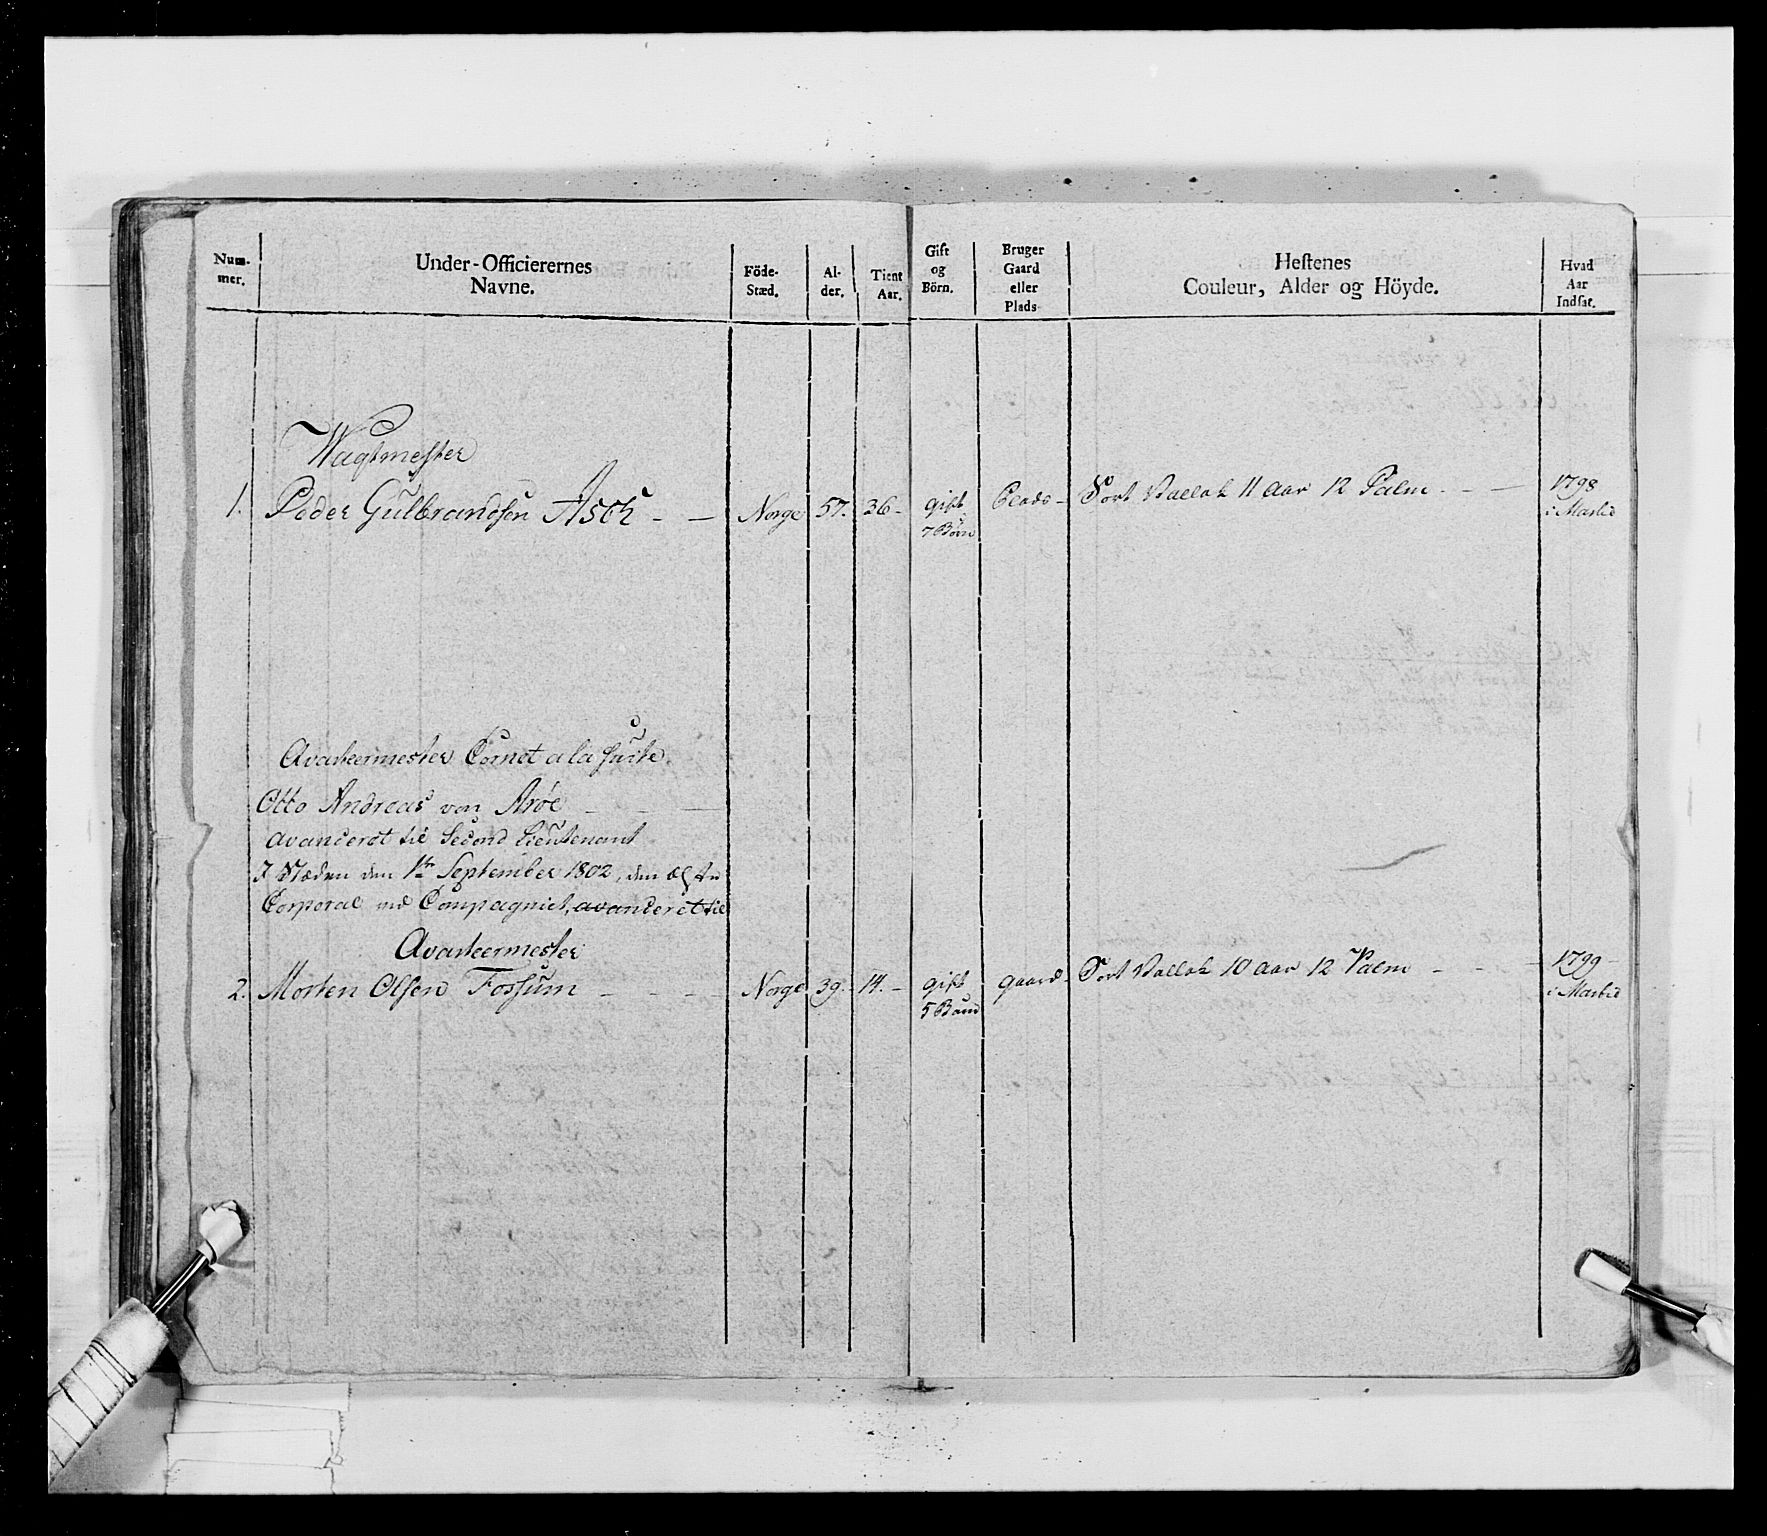 Num-
mer.
Under-Officierernes
Navne.
Föde-
Stæd.
Al-
der.
Tient
Aar.
Gift
og
Börn.
Bruger
Gaard
eller
Plads
Hestenes
Couleur, Alder og Höyde.
Hvad
Aar
Indsat.
Wagtmester
1. Peder Gulbrandsen Asch - - Norge 57. 36 - gift Plads - Sort Vallak 11 Aar 12 Palm - - 1798
7 Börn
i Martii
Qvarteermester Cornet a la suite
Otto Andreas von Aröe - - -
avanceret til Second Lieutenant
I Stæden den 1te September 1802, den ælste
Corporal ved Compagniet, avanceret til
Qvarteermester
2. Morten Olsen Fossum - - - - Norge 39. 14. - gift gaard - Sort Vallak 10 Aar 12 Palm - - - 1799 -
5 Börn
i Martii